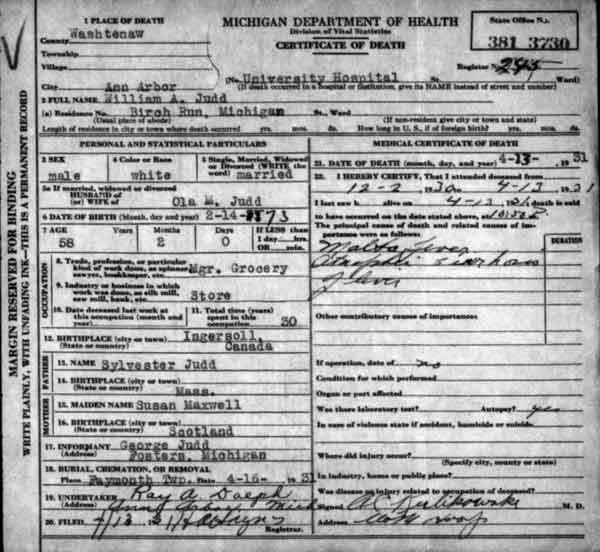 1 PLACE OF DEATH
County Washtenaw
Township
Village
City Ann Arbor
MICHIGAN DEPARTMENT OF HEALTH
Division of Vital Statistics
CERTIFICATE OF DEATH
State Office No.
381 3730
Register No.
(No. University Hospital St. Ward)
(If death occurred in a hospital or institution, give its NAME instead of street and number)
2 FULL NAME William A. Judd
(a) Residence No. Birch Run, Michigan St., Ward
(Usual place of abode) (If non-resident give city or town and state)
Length of residence in city or town where death occurred yrs. mos. ds. How long in U. S., if of foreign birth? yrs. mos. ds.
MARGIN RESERVED FOR BINDING
WRITE PLAINLY, WITH UNFADING INK—THIS IS A PERMANENT RECORD
PERSONAL AND STATISTICAL PARTICULARS
3 SEX
male
4 Color or Race
white
5 Single, Married, Widowed or Divorced (WRITE the word)
married
5a If married, widowed or divorced
HUSBAND of
(or) WIFE of Ola M. Judd
6 DATE OF BIRTH (Month, day and year) 2-14-1873
7 AGE Years Months Days If LESS than
58 2 0 1 day hrs.
OR min.
OCCUPATION
8. Trade, profession, or particular
kind of work done, as spinner,
sawyer, bookkeeper, etc. Mgr. Grocery
9. Industry or business in which
work was done, as silk mill,
saw mill, bank, etc. Store
10. Date deceased last work at
this occupation (month and
year)
11. Total time (years)
spent in this
occupation 30
12. BIRTHPLACE (city or town) Ingersoll,
(State or country) Canada
FATHER
13. NAME Sylvester Judd
14. BIRTHPLACE (city or town)
(State or country) Mass.
MOTHER
15. MAIDEN NAME Susan Maxwell
16. BIRTHPLACE (city or town)
(State or country) Scotland
17. INFORMANT George Judd
(Address) Fosters, Michigan
18. BURIAL, CREMATION, OR REMOVAL
Place Taymouth Twp. Date 4-15- 1931
19. UNDERTAKER Ray A.
Ann Arbor Mich
20. FILED 4/13 1931
Registrar.
MEDICAL CERTIFICATE OF DEATH
21. DATE OF DEATH (month, day, and year) 4-13- 1931
22. I HEREBY CERTIFY, That I attended deceased from
12-2 1930 to 4-13 1931
I last saw h alive on 4-13 1931 death is said
to have occurred on the date stated above, at
The principal cause of death and related causes of importance were as follows:
DURATION
Malta fever
Other contributory causes of importance:
If operation, date of no
Condition for which performed
Organ or part affected
Was there laboratory test? Autopsy? yes
In case of violence state if accident, homicide or suicide.
Where did injury occur?
(Specify city, county or state)
In industry, home or public place?
Was disease or injury related to occupation of deceased?
Signed M. D.
Address